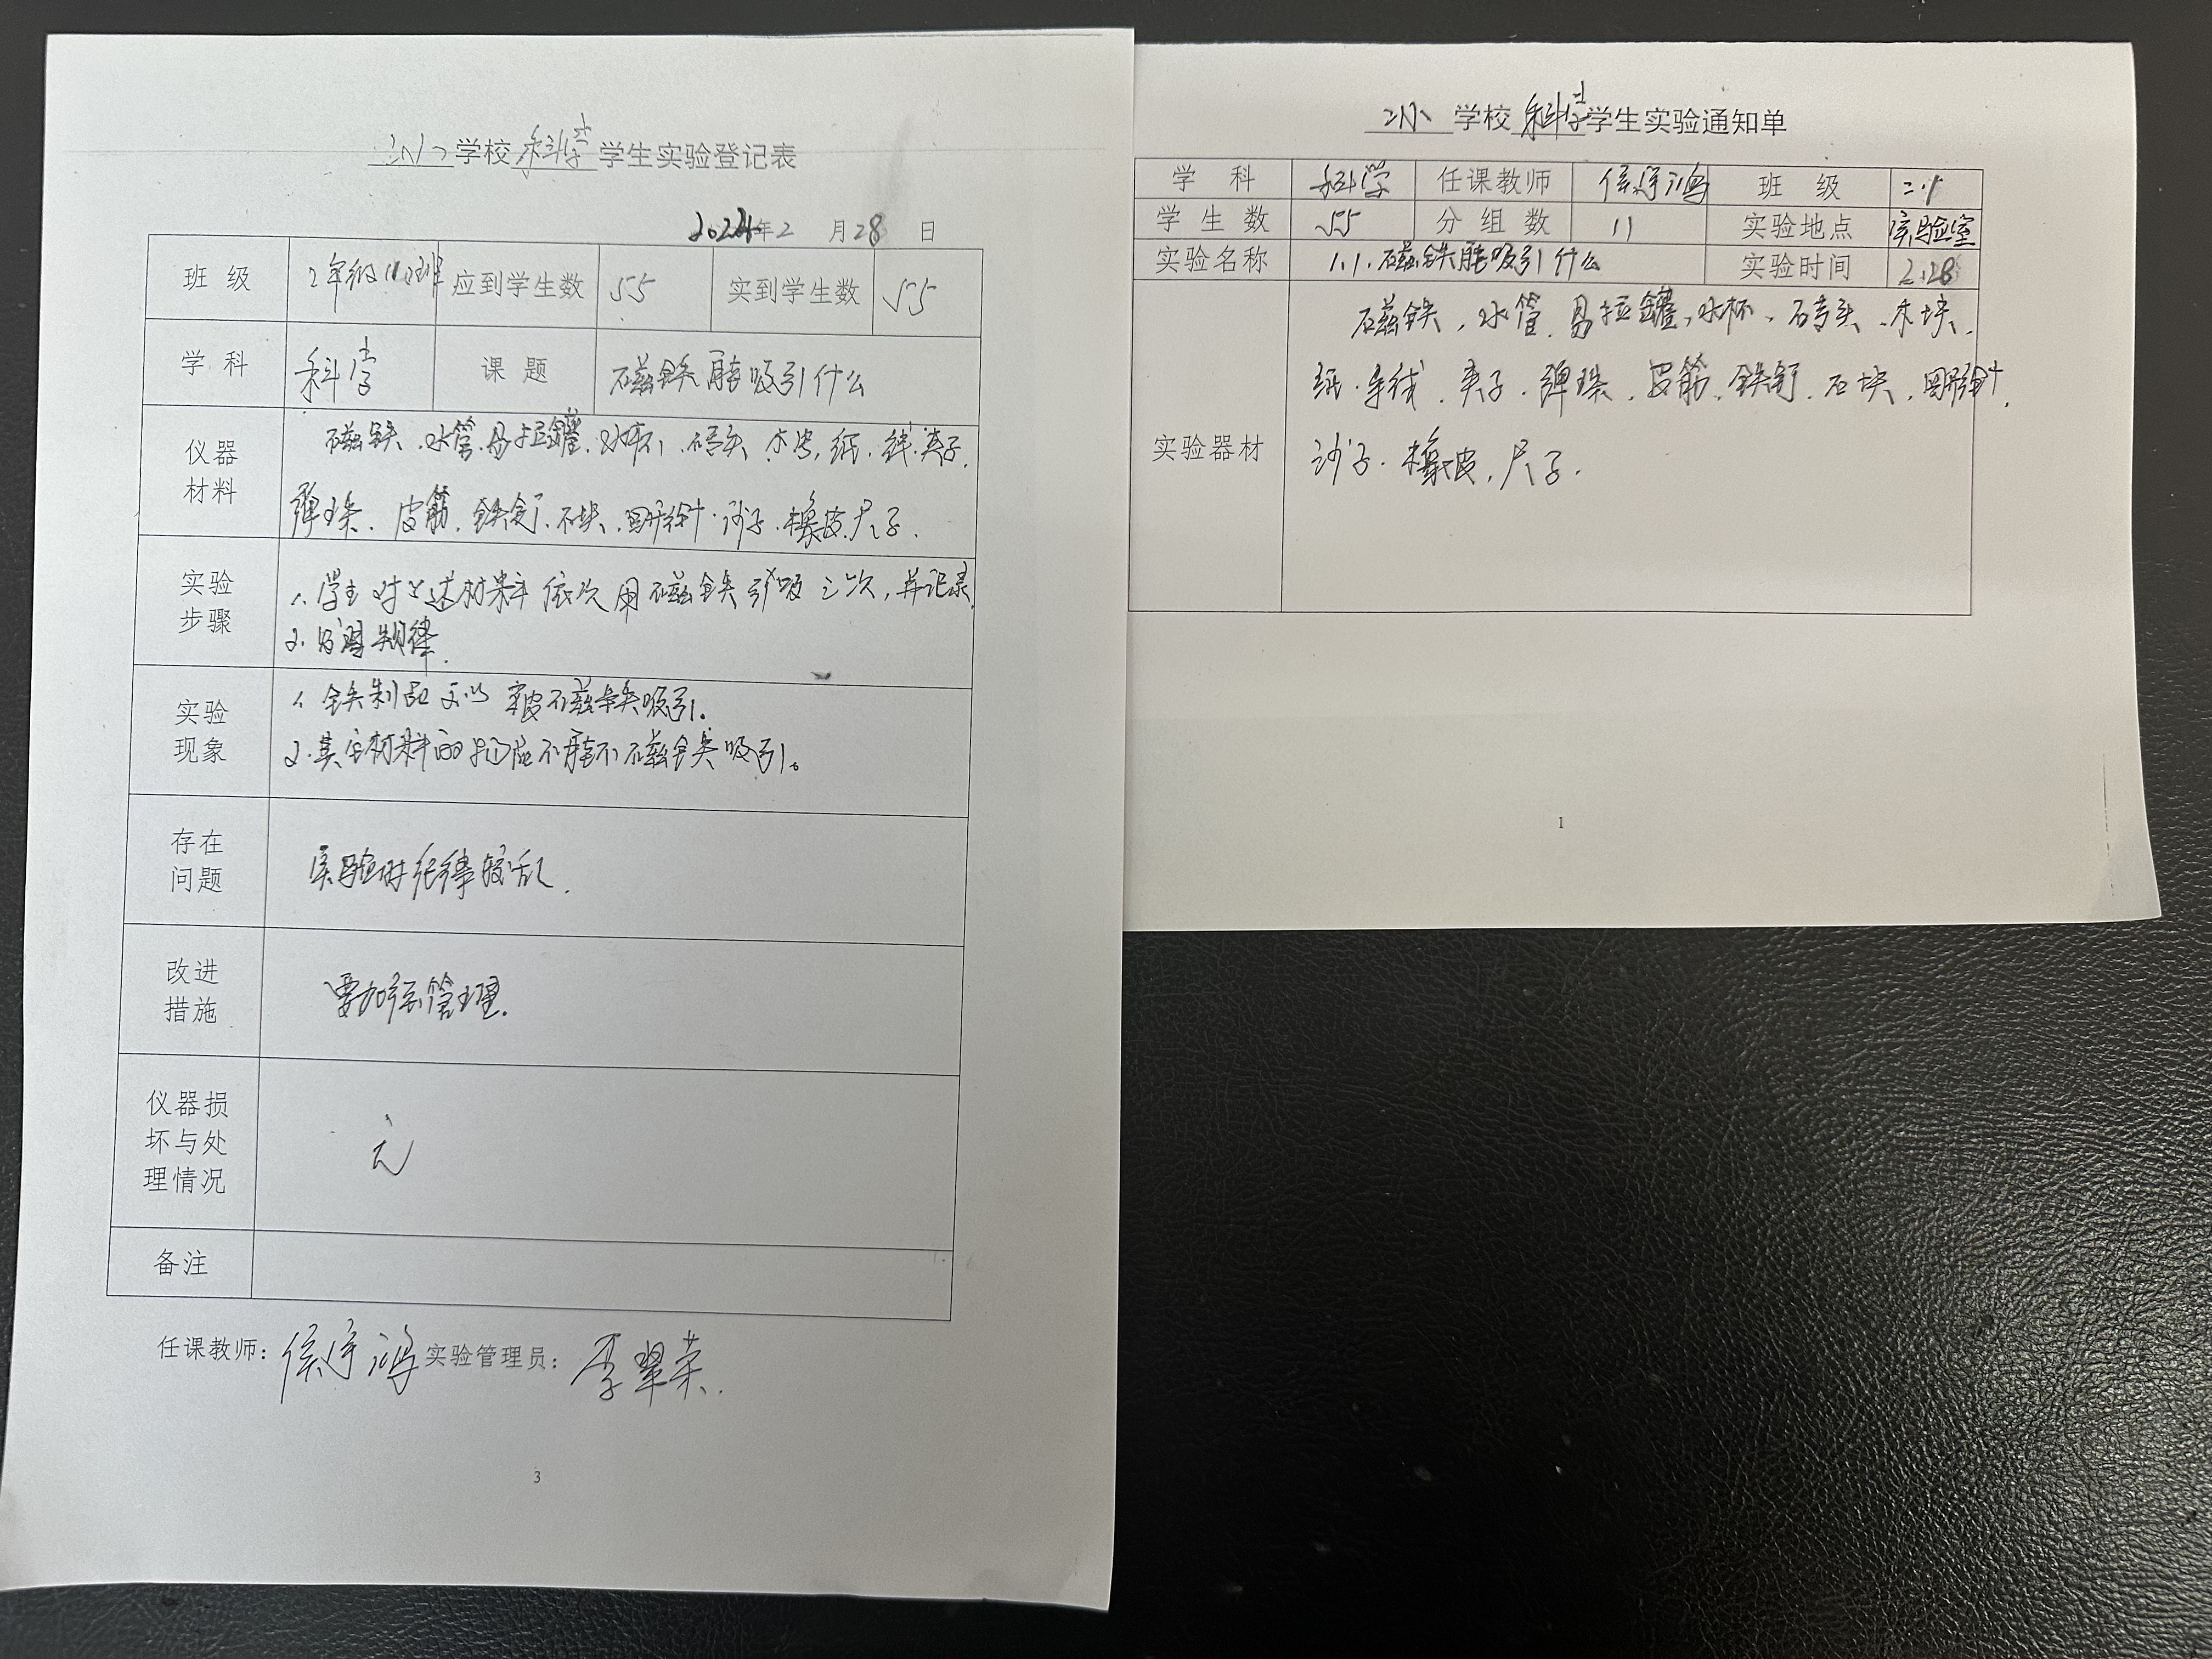 二小学校科学学生实验登记表
2024年2月28日
班级 2年级(1)班 应到学生数 55 实到学生数 55
学科 科学 课题 磁铁能吸引什么
仪器材料 磁铁、水管、易拉罐、水杯、砖头、木块、纸、线、夹子、
弹珠、皮筋、铁钉、石块、回形针、沙子、橡皮、尺子.
实验步骤 1.学生对上述材料依次用磁铁引吸三次,并记录.
2.归纳规律.
实验现象 1.铁制品可以被磁铁吸引.
2.其它材料的物体不能被磁铁吸引。
存在问题 实验时纪律较乱.
改进措施 要加强管理.
仪器损坏与处理情况 无
备注
任课教师: 实验管理员: 李翠荣.
3
二小学校科学学生实验通知单
学科 科学 任课教师 班级 二.1
学生数 55 分组数 11 实验地点 实验室
实验名称 1.1.磁铁能吸引什么 实验时间 2.28
实验器材 磁铁、水管、易拉罐、水杯、砖头、木块、
纸、毛线、夹子、弹珠、皮筋、铁钉、石块、回形针、
沙子、橡皮、尺子.
1